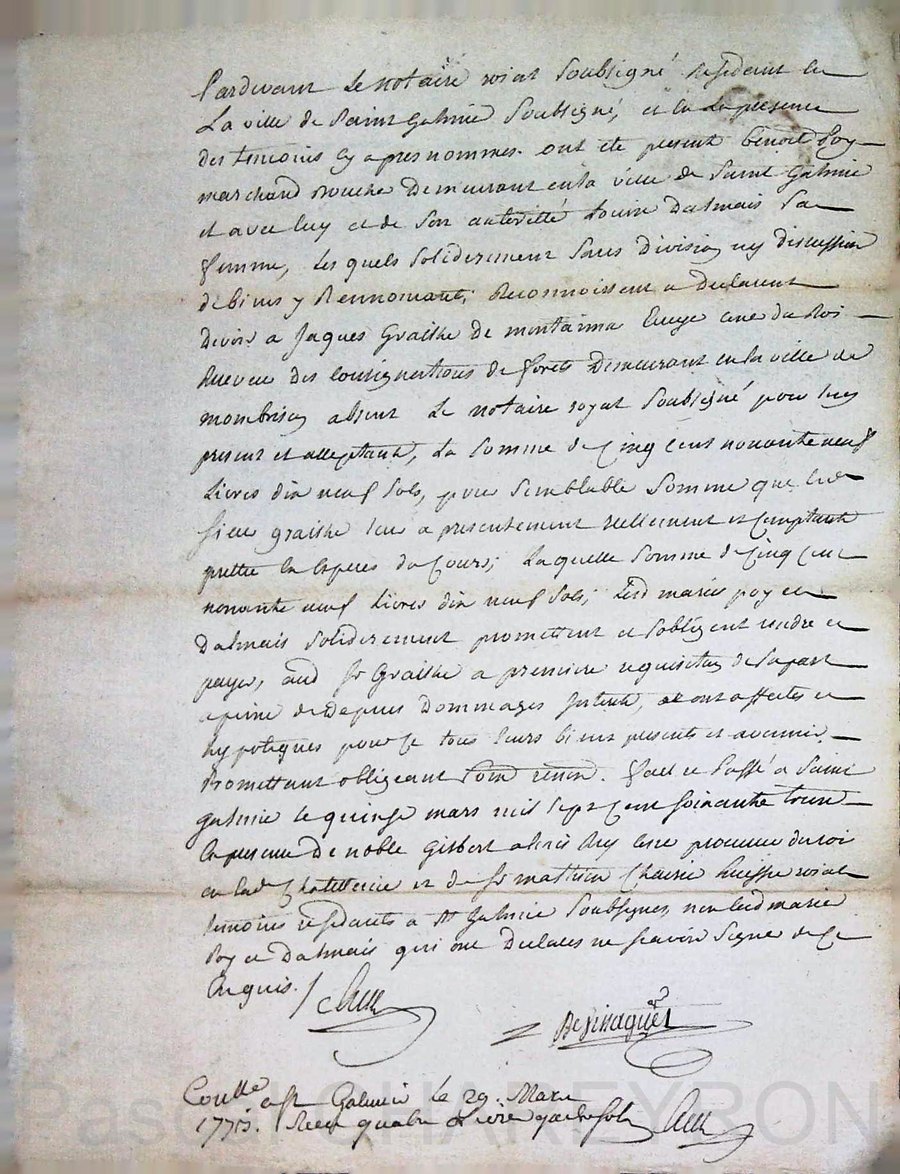 Pardevant Le notaire roial Soubsigné résidant en
La ville de Saint Galmié Soubsigné, et en La présence
des temoins cy apres nommes. ont ete present benoit Poy
marchand Demeurant en la ville de Saint Galmie
et avec luy et de son autorité Dalmais Sa
femme, Les quels Soliderement Sans Division ny discussion
de biens y Rennomants, Reconnoissent a declarent
devoir a Jaques Graithe de du Roi
des de forets Demeurant en la ville de
monbrison absent Le notaire royal Soubsigné pour luy
present et acceptant, La Somme de Cinq cent nonante neuf
Livres dix neuf Sols, pour Semblable Somme que led
Sieur graithe leur a presentement reellement et Comptant
prette en especes du Cours; Laquelle Somme de Cinq cent
nonante neuf Livres dix neuf Sols; Lesd mariés poy et
Dalmais Soliderement promettent et sobligent rendre et
payer, aud Sr Graithe a premiere requisition de Sa part
a peine de Depens Dommages Interets, et ont affectes et
hypoteques pour Ce tous leurs biens presents et avenir
Promettant obligeant Soum renon. fait et Passé a Saint
galmie le quinze mars mil Sept Cent Soixante
en presence De noble Gilbert procureur du roi
en lad Chatellenie et de Sr mathieu huissier roial
temoins residants a St Galmie Soubsignes, non lesd maries
Poy et Dalmais qui ont Declares ne Scavoir Signer de Ce
Enquis.
Conlle a St Galmier le 29. Mars
Recu quatre Livre Sols
Pascal CHAREYRON